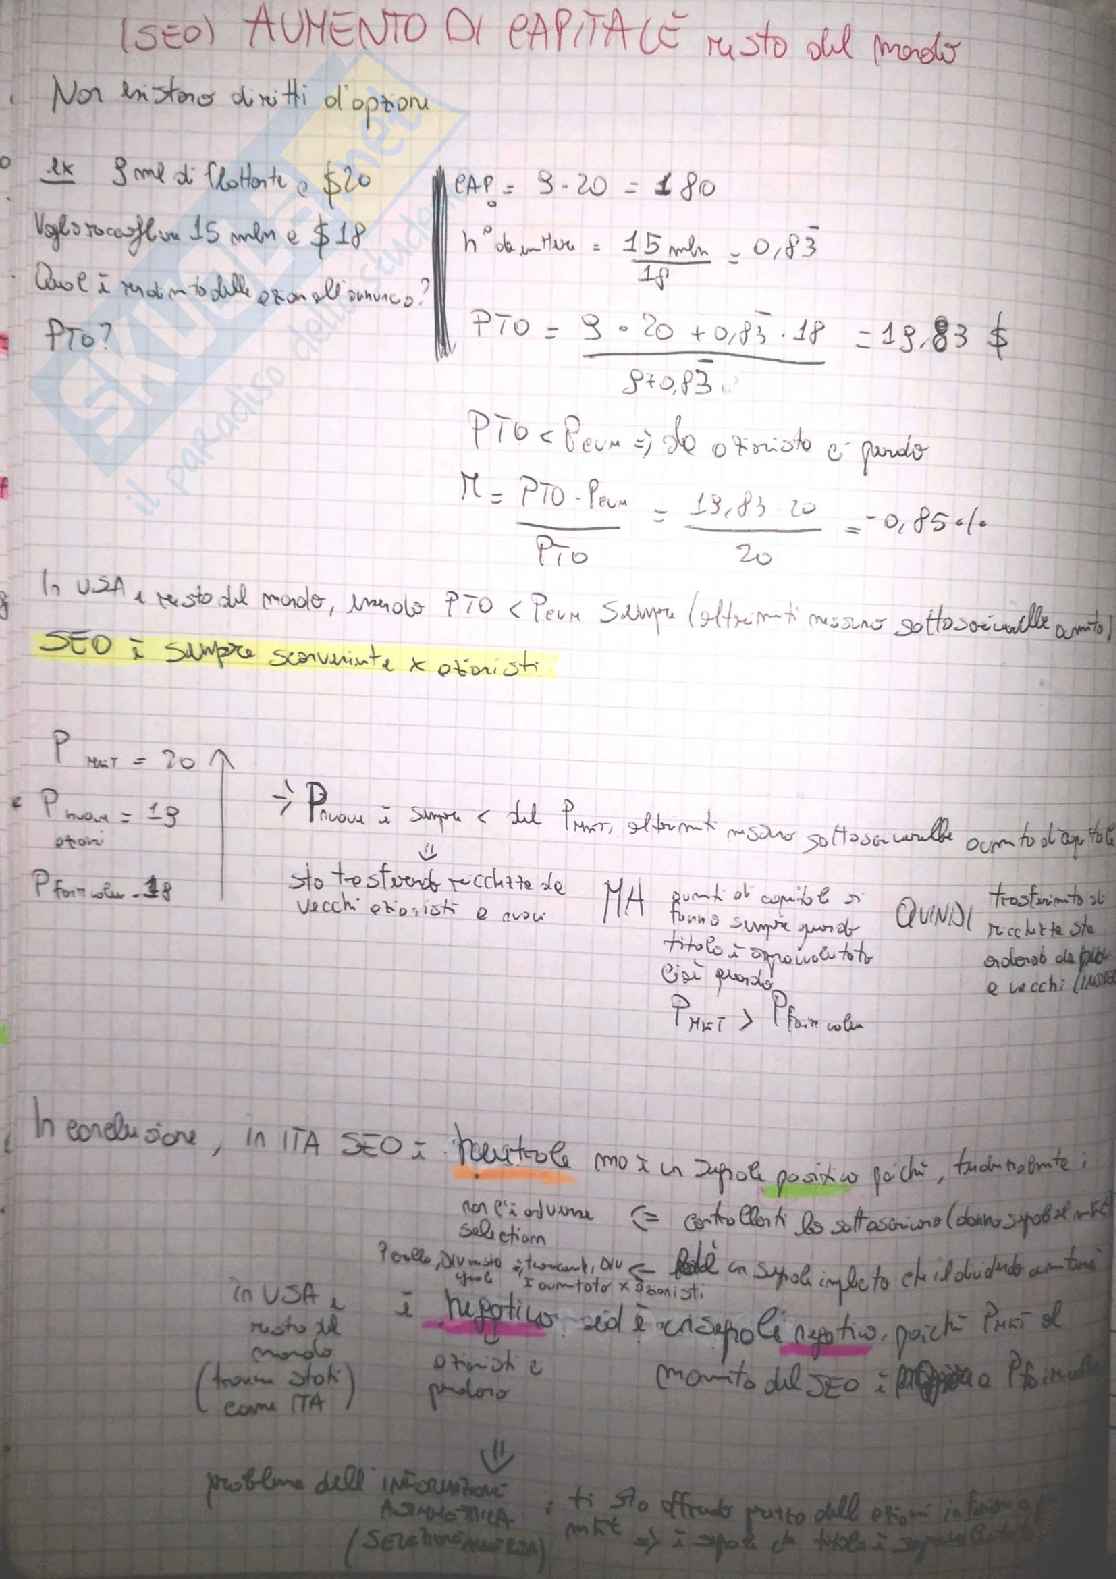 (SEO) AUMENTO DI CAPITALE resto del mondo
Non esistono diritti d'opzione
ex 9 ml di flottante a $20
Voglio raccogliere 15 mln a $18
Qual è rendimento delle azioni all'annuncio?
PTO?
CAP₀ = 9 · 20 = 180
n° da emettere = 15 mln / 18 = 0,83
PTO = 9 · 20 + 0,83 · 18 / 9+0,83 = 19,83 $
PTO < Pcum => da azionista ci perdo
r = PTO - Pcum / PTO = 19,83 20 / 20 = -0,85%
In USA e resto del mondo, essendo PTO < Pcum sempre (altrimenti nessuno sottoscriverebbe aumento)
SEO è sempre sconveniente x azionisti
P MKT = 20
P nuove azioni = 19
P fair value = 18
=> P nuove è sempre < del P MKT, altrimenti nessuno sottoscriverebbe aumento d'capitale
sto trasferendo ricchezza da vecchi azionisti a nuovi
MA aumenti di capitale si fanno sempre quando titolo è sopravvalutato
cioè quando
P MKT > P fair value
QUINDI trasferimento di ricchezza sta andando da
a vecchi
In conclusione, in ITA SEO è neutrale ma è un segnale positivo poiché, tendenzialmente:
non c'è adverse selection <= controllanti lo sottoscrivono (danno segnale al mkt)
P crolla, DIV resta uguale, DIV è aumentato x azionisti <= è un segnale implicito che il dividendo aumenterà
in USA e resto del mondo
(tranne stati come ITA)
è negativo ed è un segnale negativo, poiché P MKT al
azionisti ci perdono
momento del SEO è a P fair value
problema dell'INFORMAZIONE ASIMMETRICA
(SELEZIONE AVVERSA)
: ti sto offrendo prezzo delle azioni
mkt => è segnale che titolo è
SKUOLA.net
il paradiso dello studente